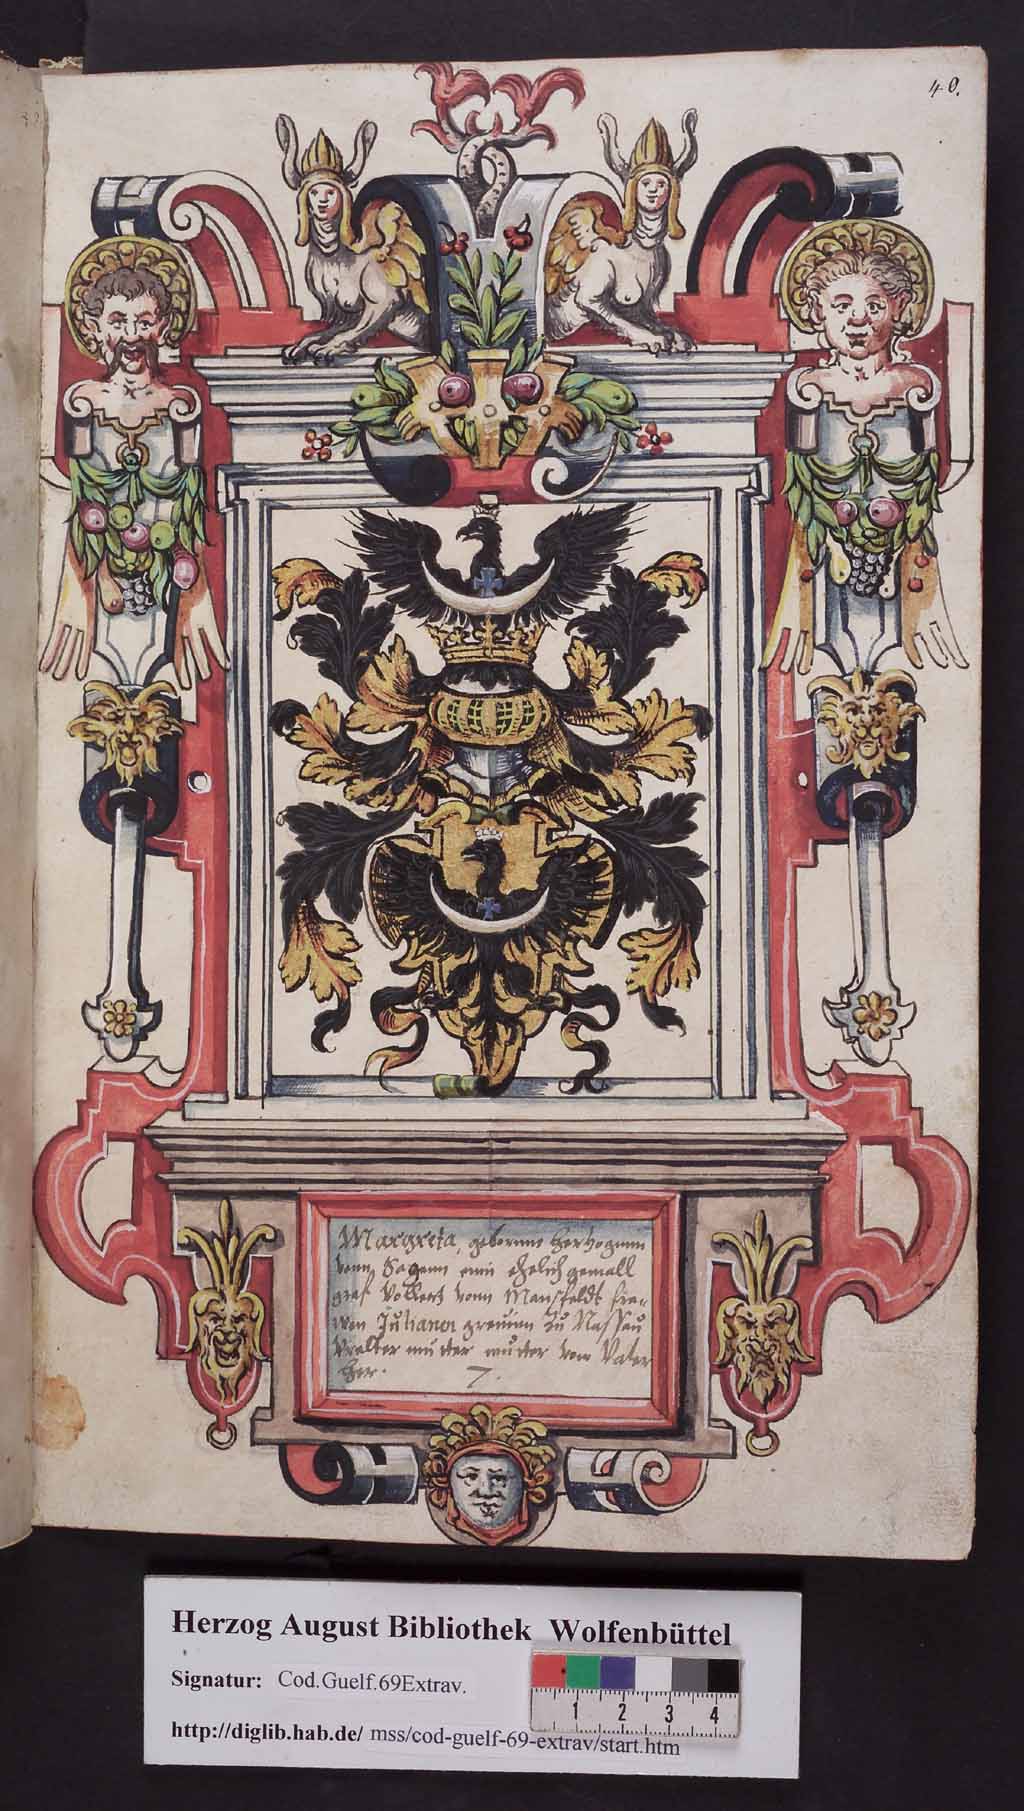 40.
Margreta, gebornne hertzoginn
vonn Sagenn einn ehelich gemall
graf Volbertz vonn Mansfeldt fre-
wen Juliana grevinn zu Nassau
Vralter mutter mutter vom Vater
her.
7.
Herzog August Bibliothek Wolfenbüttel
Signatur: Cod.Guelf.69Extrav.
http://diglib.hab.de/ mss/cod-guelf-69-extrav/start.htm
1 2 3 4